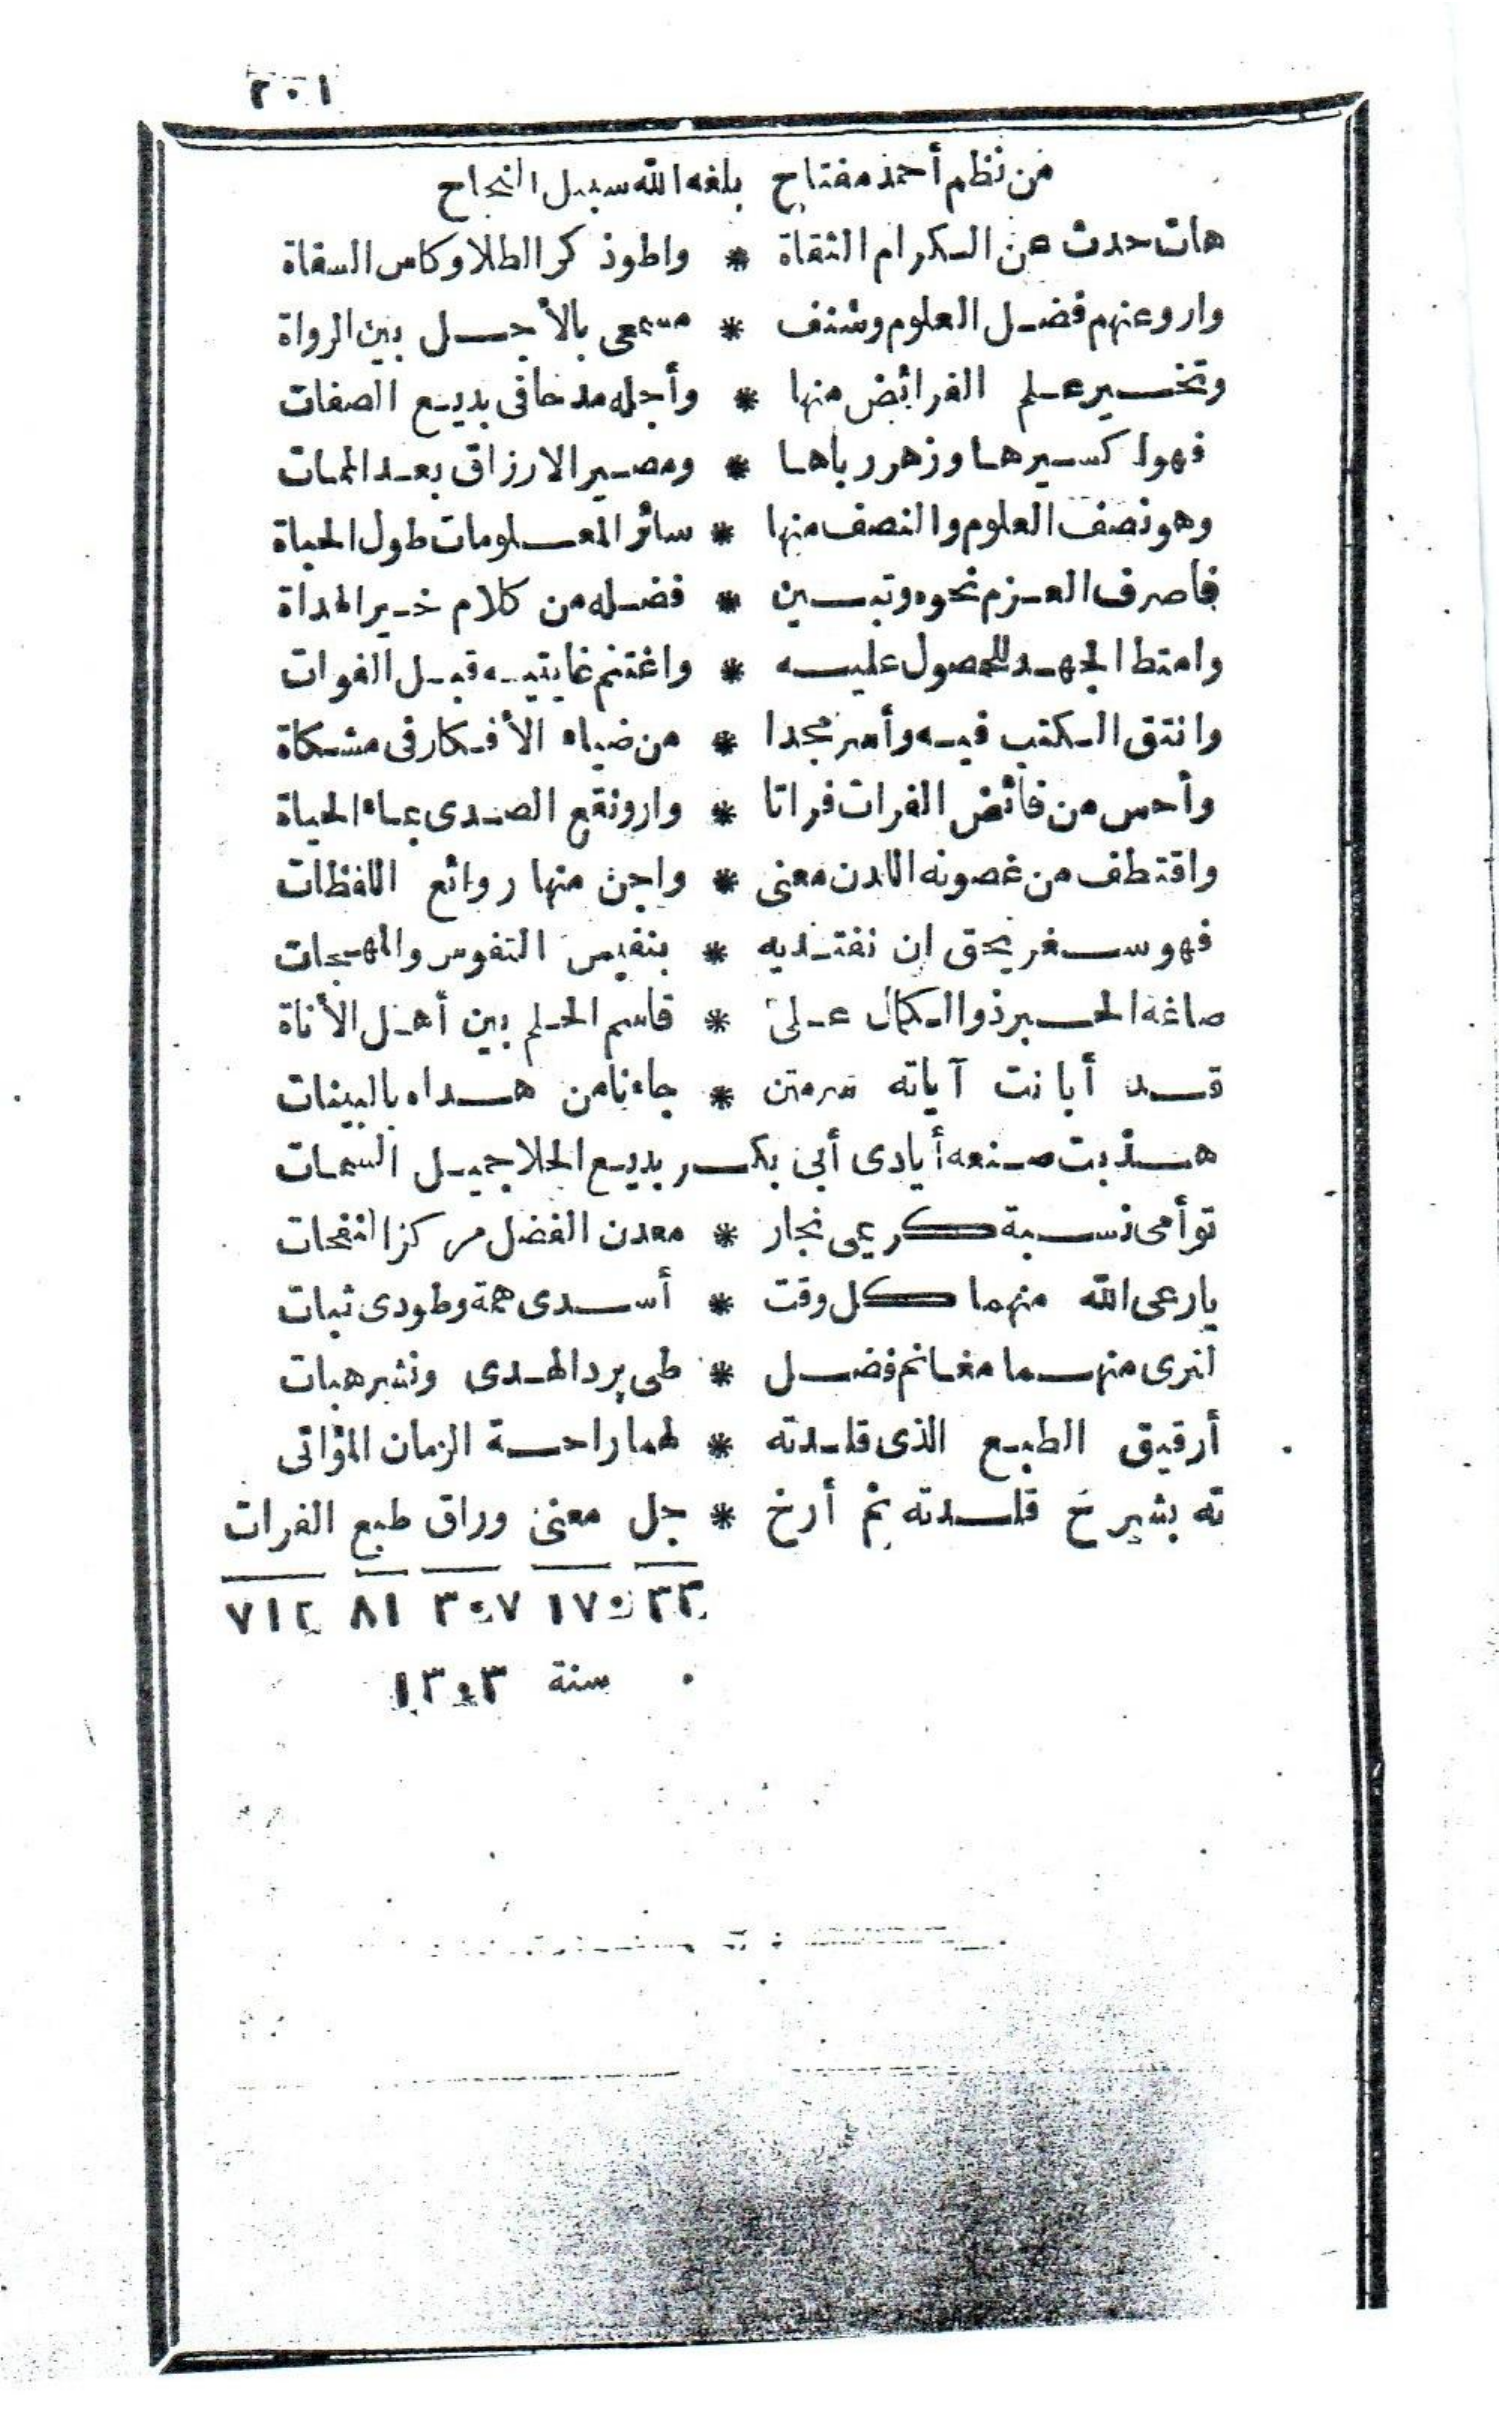 ٢٠١
من نظم أحمد مفتاح بلغه الله سبيل النجاح
هات حدث عن الكرام الثقاة * واطو ذكر الطلا وكاس السقاة
وارو عنهم فضل العلوم وشنف * مسمعى بالأجل بين الرواة
وتخير علم الفرائض منها * وأجله مدحا فى بديع الصفات
فهو اكسيرها وزهر رباها * ومصير الارزاق بعد الممات
وهو نصف العلوم والنصف منها * سائر المعلومات طول الحياة
فاصرف العزم نحوه وتبين * فضله من كلام خير الهداة
وامتط الجهد للحصول عليه * واغتنم غايتيه قبل الفوات
وانتق الكتب فيه وأسر مجدا * من ضياء الأفكار فى مشكاة
وأحس من فائض الفرات فراتا * وارو نقع الصدى بماء الحياة
واقتطف من غصونه اللدن معنى * واجن منها روائع اللفظات
فهو سفر يحق ان نفتديه * بنفيس النفوس والمهجات
صاغه الحبر ذو الكمال على * قاسم الحلم بين أهل الأناة
قد أبانت آياته سر متن * جاءنا من هداه بالبينات
هذبت صنعه أيادى أبى بكر بديع الحلا جميل السمات
توأمى نسبة كريمى نجار * معدن الفضل مركز النفحات
يارعى الله منهما كل وقت * أسدى همة وطودى ثبات
لنرى منهما مغانم فضل * طى برد الهدى ونشر هبات
أرقيق الطبع الذى قلدته * لهما راحة الزمان المؤاتى
ته بشرح قلدته ثم أرخ * جل معنى وراق طبع الفرات
٣٣ ١٧٠ ٣٠٧ ٨١ ٧١٢
سنة ١٣٠٣